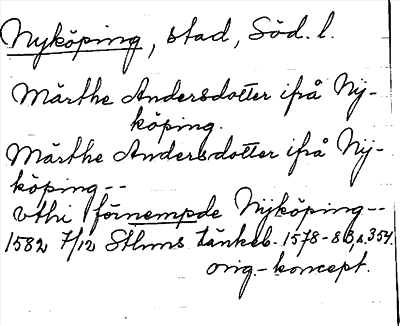 Nyköping, stad, Söd. l.
Märthe Andersdotter ifrå Ny-
köping.
Märthe Andersdotter ifrå Ny-
köping--
vthi förnempde Nyköping--
1582 7/12 Sthms tänkeb. 1578-83, s. 354.
orig.-koncept.